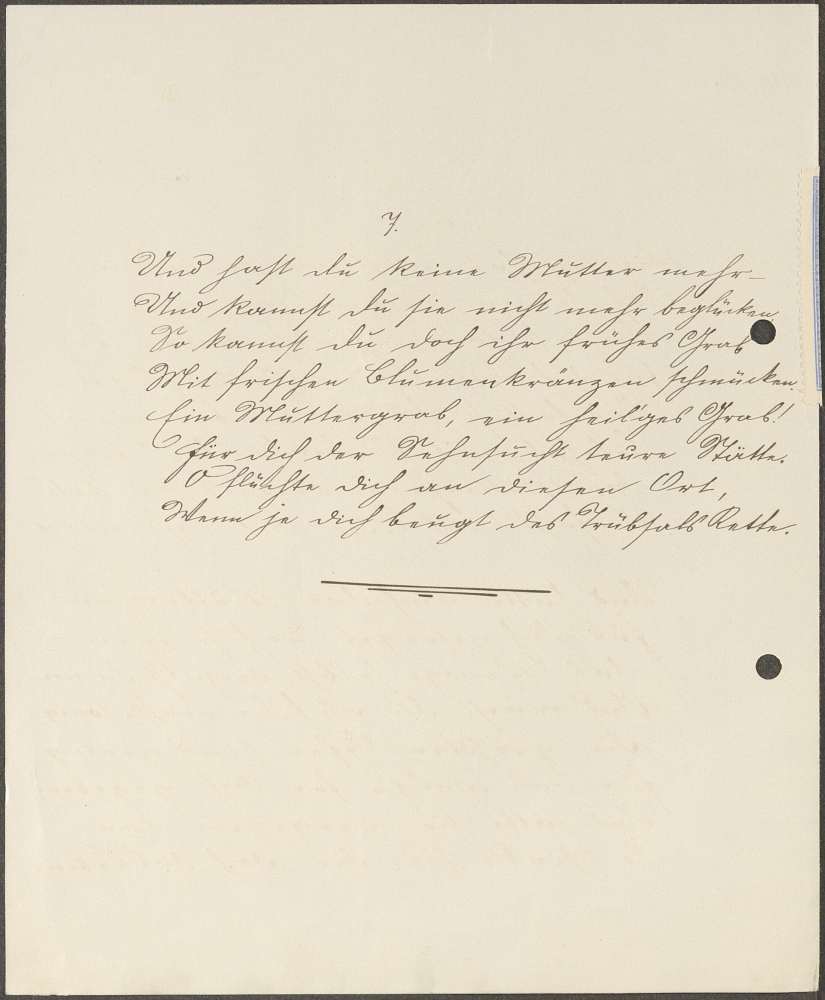 7.
Und hast du keine Mutter mehr –
Und kannst du sie nicht mehr beglücken,
So kannst du doch ihr frühes Grab
Mit frischen Blumenkränzen schmücken.
Ein Muttergrab, ein heil'ges Grab!
Für dich der Sehnsucht teure Stätte.
O flüchte dich an diesen Ort,
Wenn je dich beugt des Trübsals Kette.